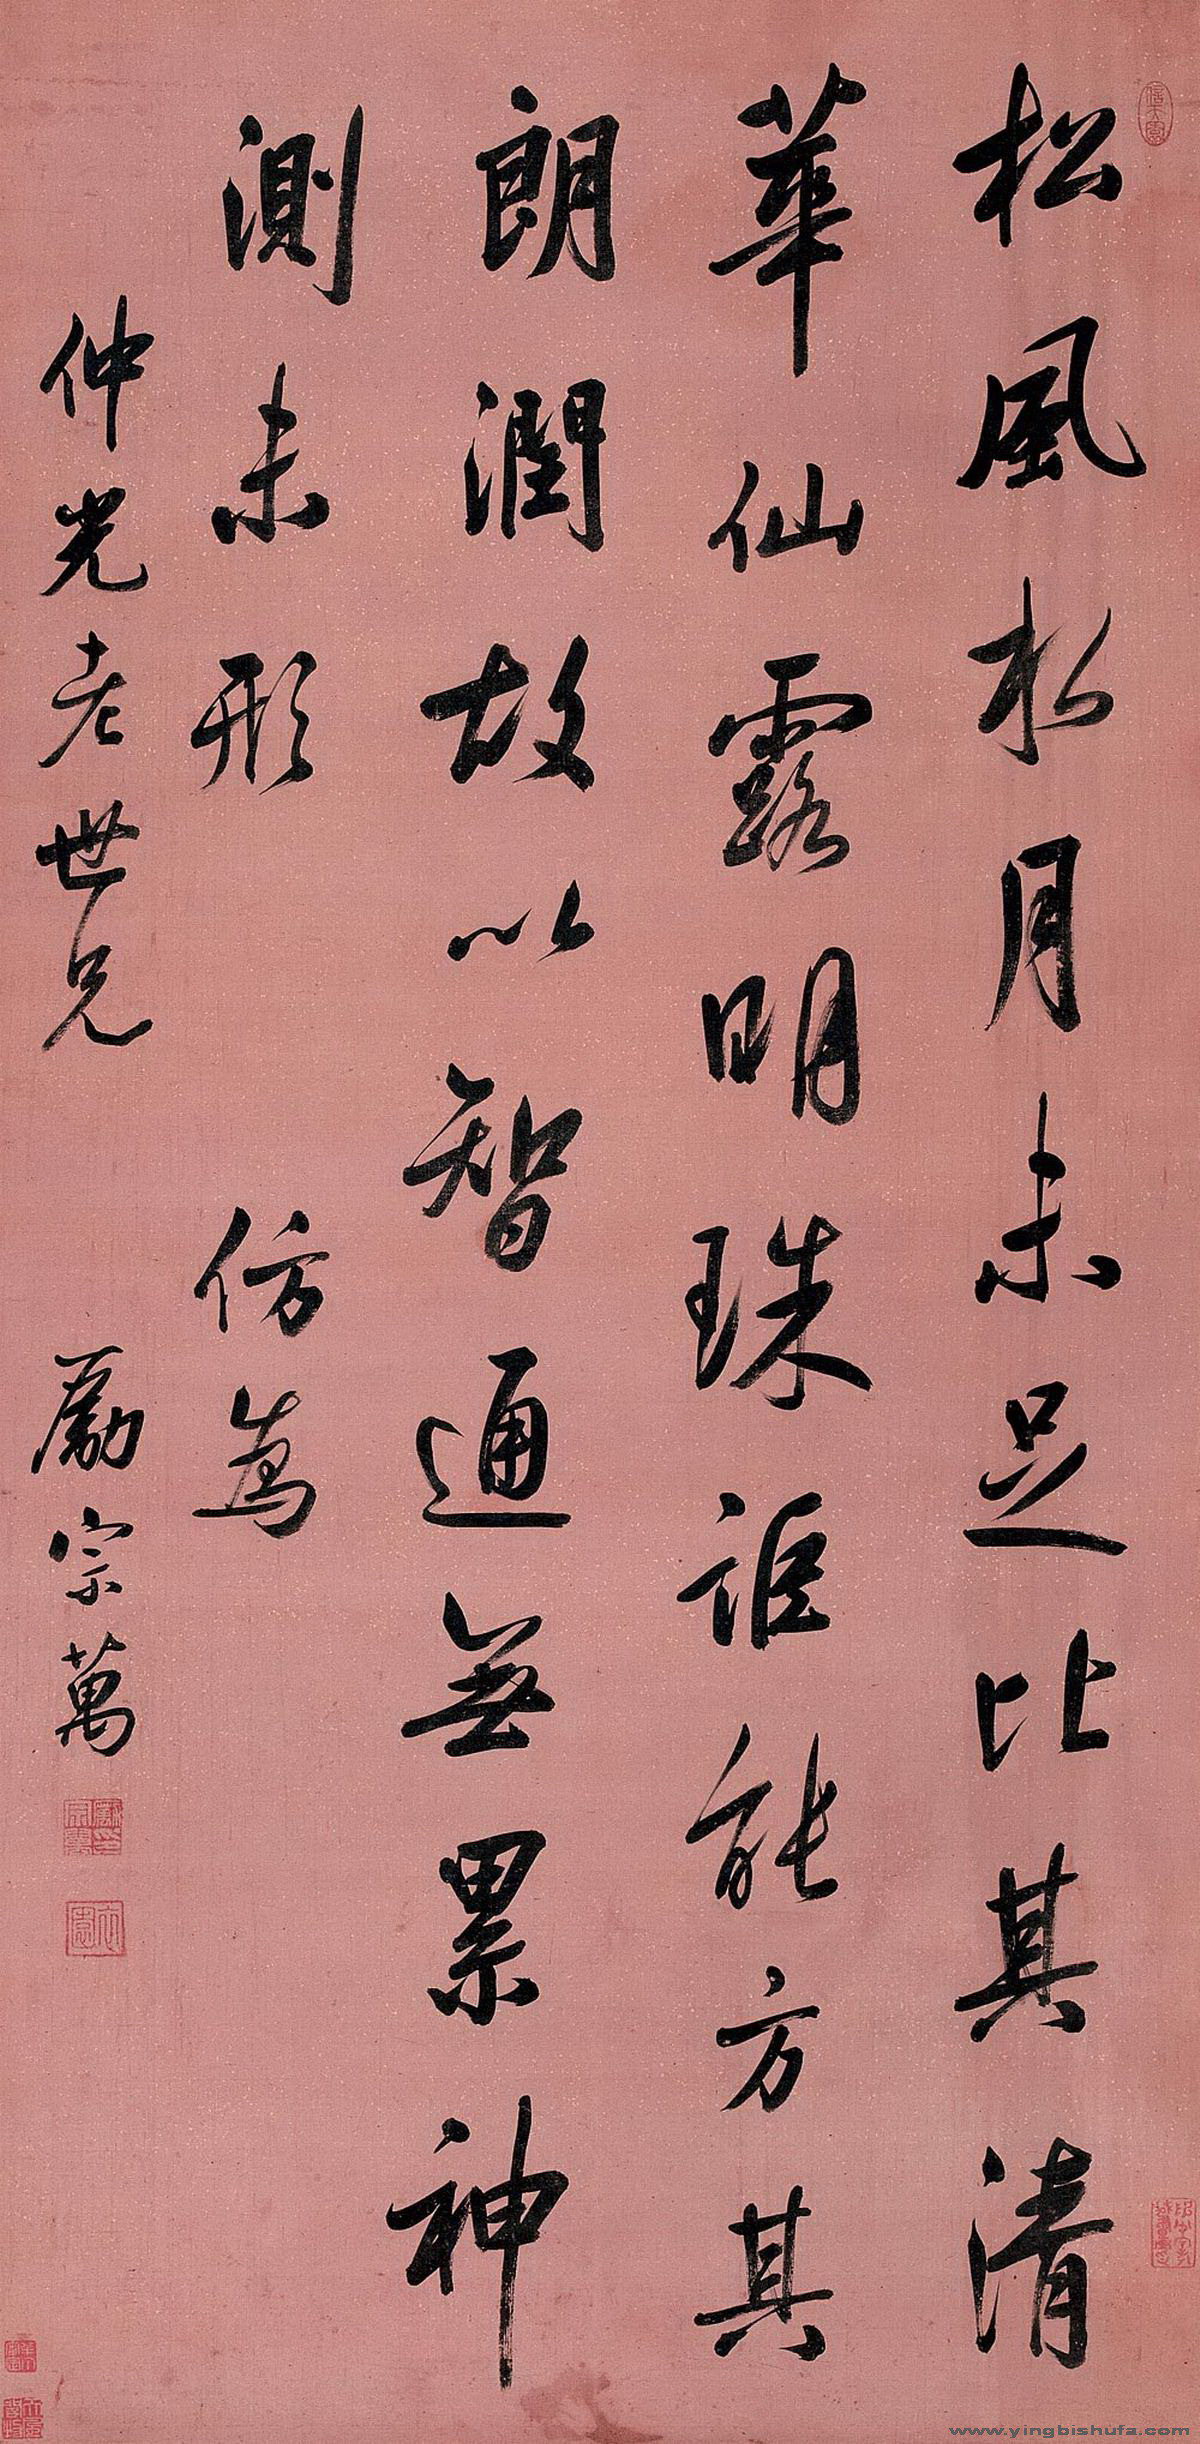 松風水月未足比其清
華仙露明珠詎能方其
朗潤故以智通無累神
測未形
仿為
仲光老世兄
勵宗萬
www.yingbishufa.com